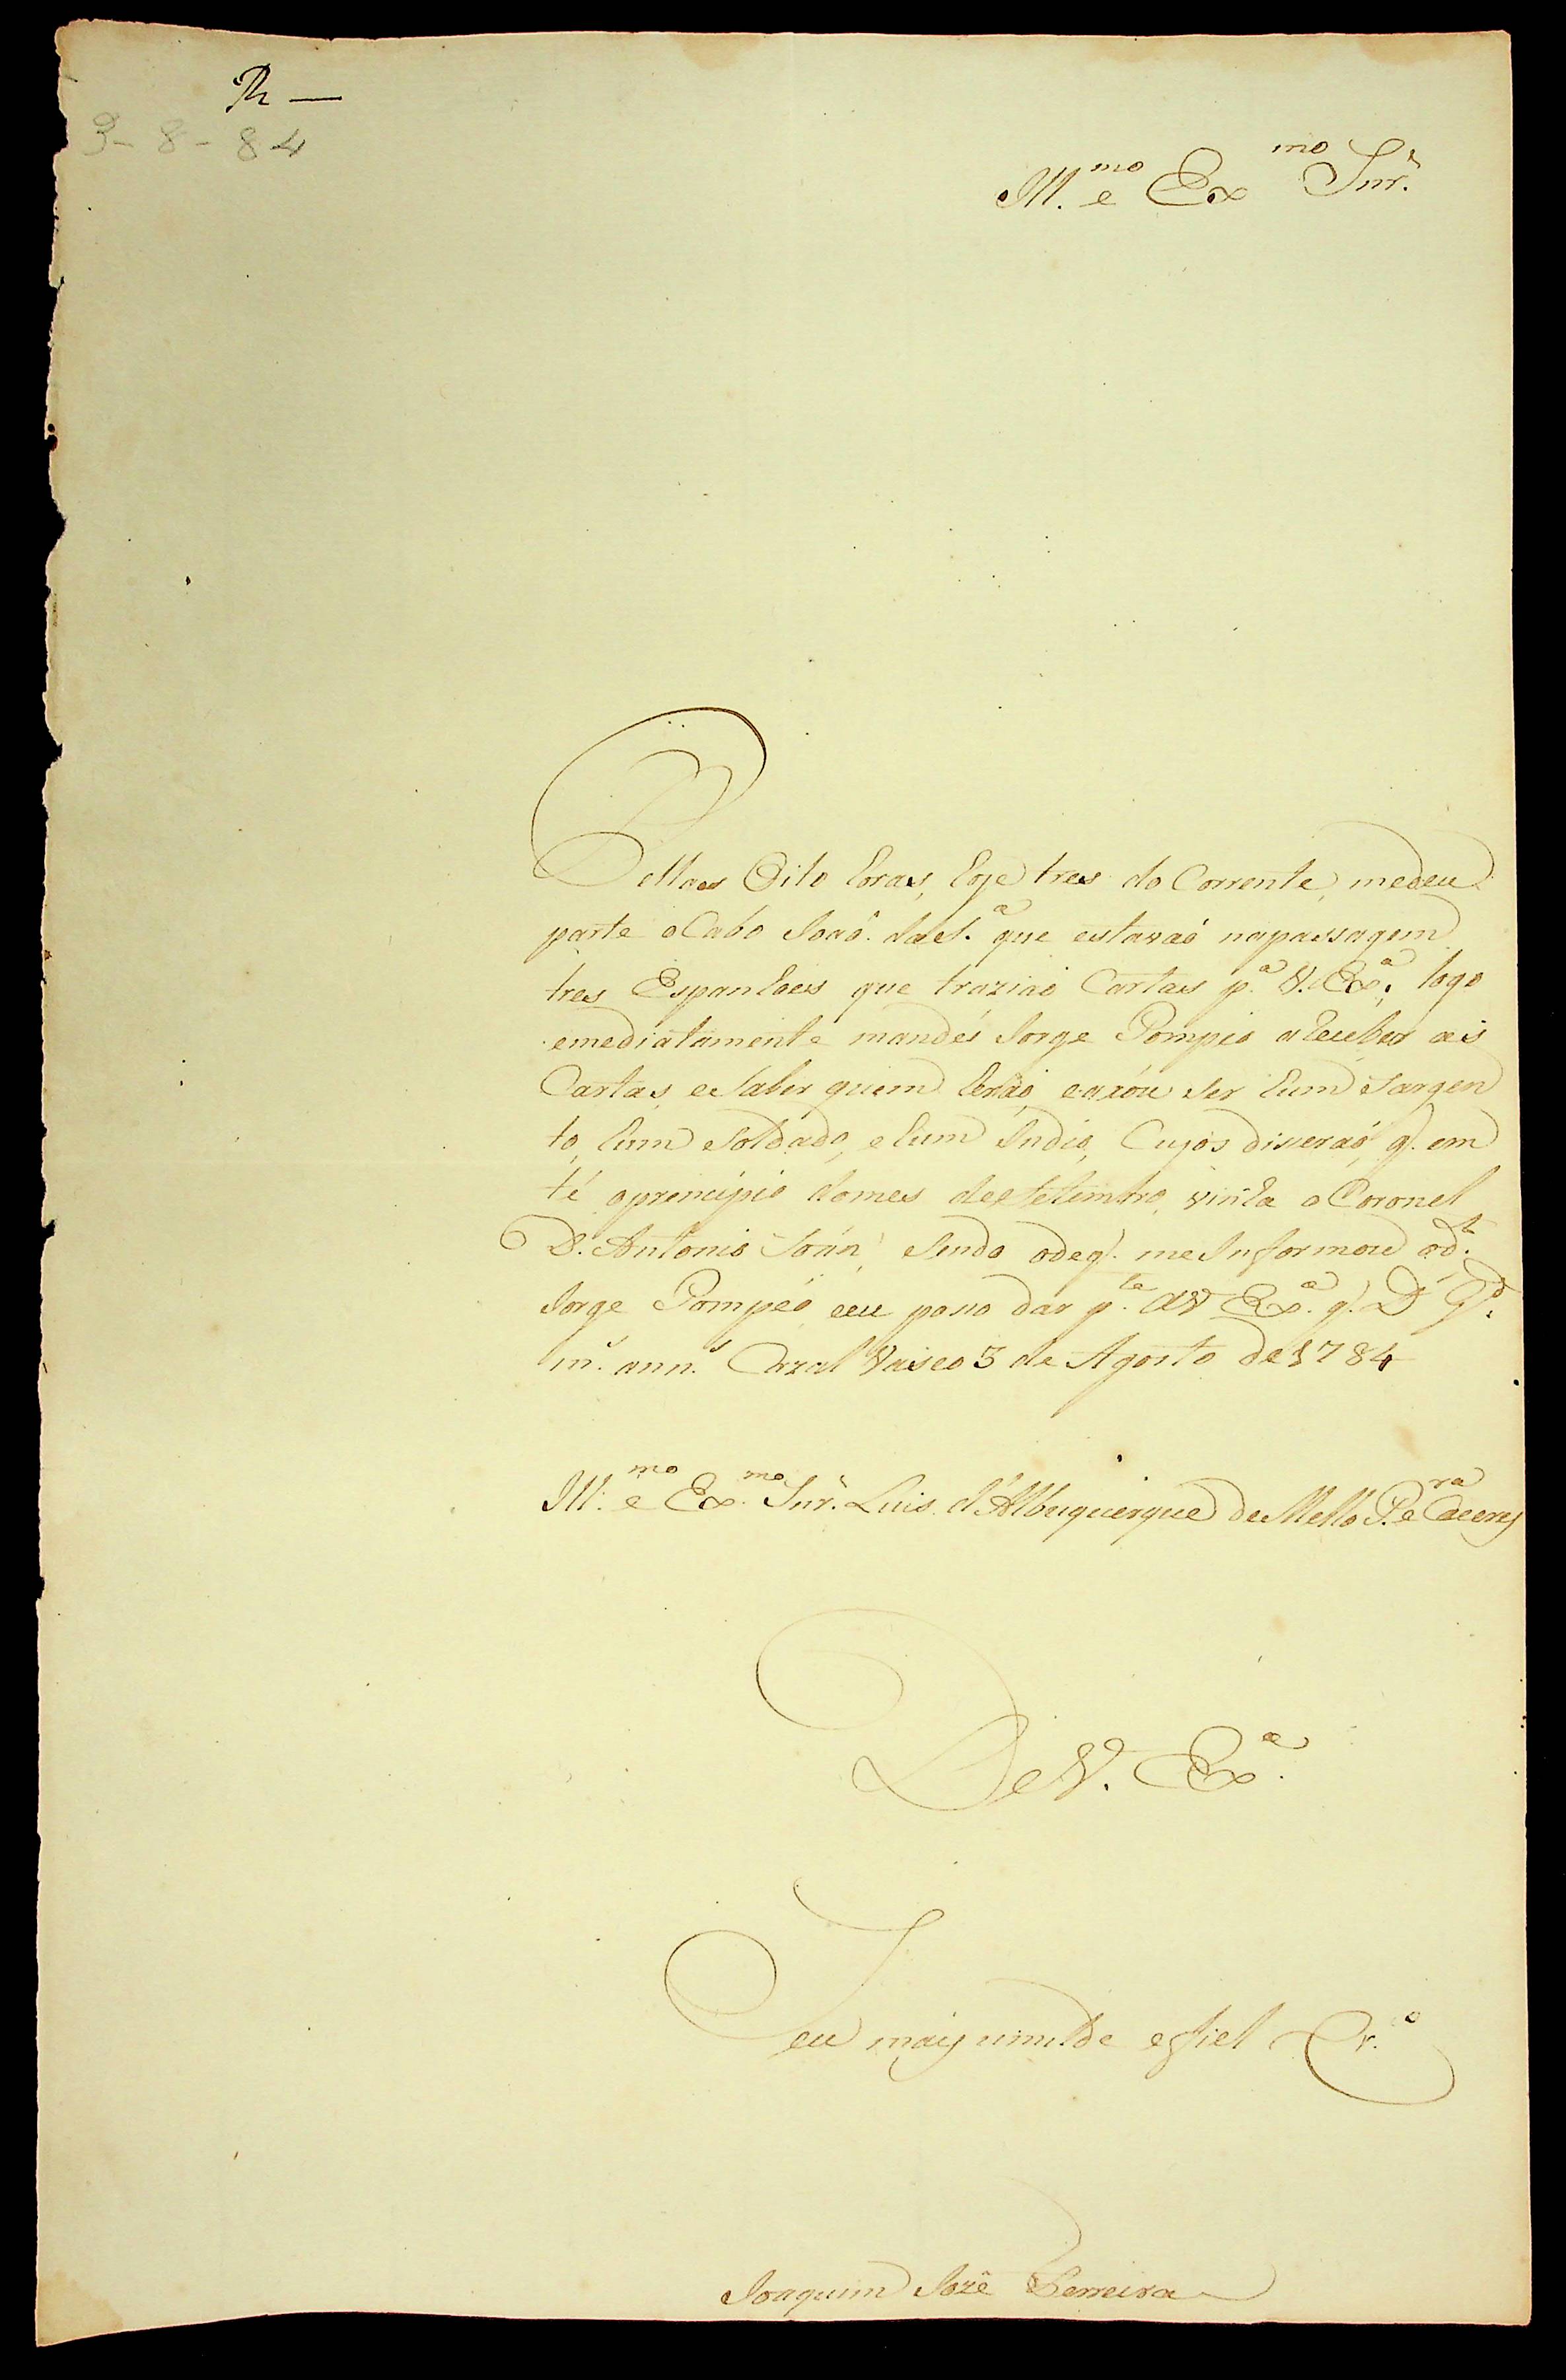 R —
3-8-84
Ill.mo e Exmo Snr.
Pellas Oito horas, hoje tres do Corrente, medeu
parte oCabo Joaõ da S.a que estavaõ napassagem
tres Espanhoes que traziaõ Cartas p.a V. Ex.a, logo
emediatamente mandei Jorge Pompeo a receber as
Cartas, e saber quem heraõ, e axou ser hum Sargen
to, hum Soldado, e hum Indio, Cujos diseraõ q. em
té oprencipio domes deSetembro, vinha o Coronel
D. Antonio Soán, sendo odeq. me Informou od.t
Jorge Pompeo, eeu poso dar p.te aV Ex.a q. Ds Gd.
m.s ann.s Cazal Vasco 3 de Agosto de 1784
Ill.mo e Ex.mo Snr. Luis d'Albuquerque deMello P.ra e Caceres
DeV. Ex.a
Seu mais umilde efiel Cr.o
Joaquim Jozê Ferreira